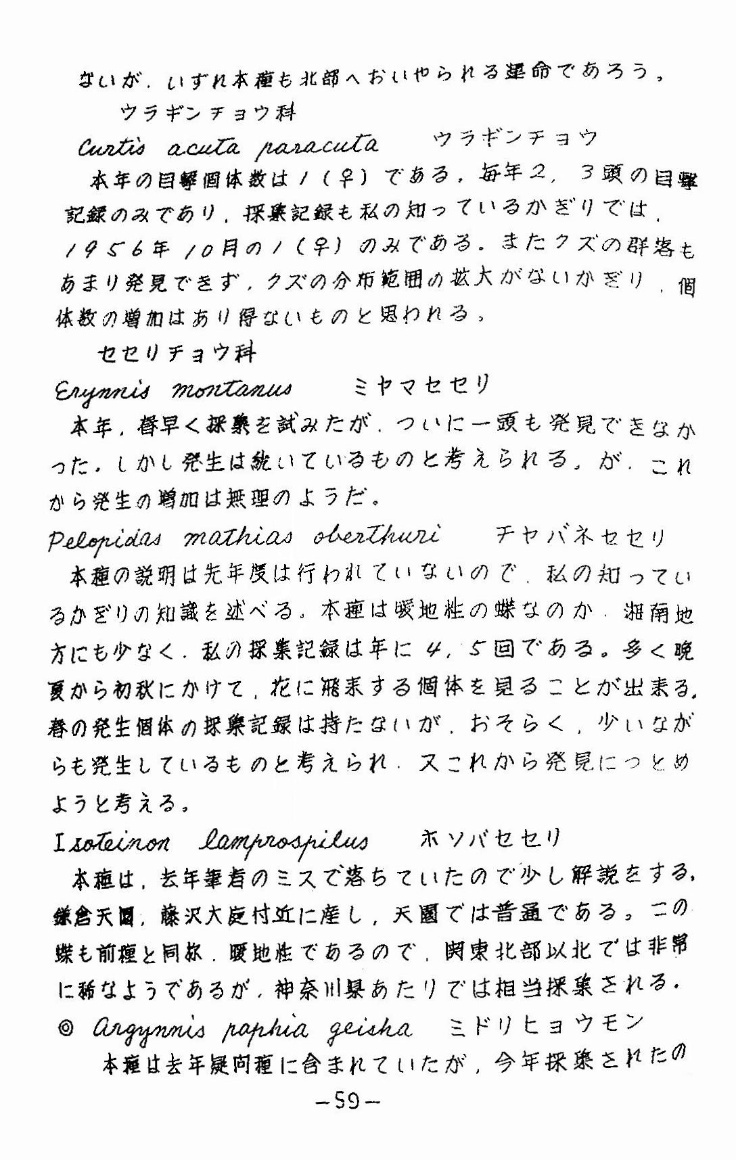 ないが、いずれ本種も北部へおいやられる運命であろう。
ウラギンチョウ科
Curtis acuta paracuta ウラギンチョウ
本年の目撃個体数は1(♀)である。毎年2, 3頭の目撃
記録のみであり、採集記録も私の知っているかぎりでは、
1956年10月の1(♀)のみである。またクズの群落も
あまり発見できず、クズの分布範囲の拡大がないかぎり、個
体数の増加はあり得ないものと思われる。
セセリチョウ科
Erynnis montanus ミヤマセセリ
本年、春早く採集を試みたが、ついに一頭も発見できなか
った。しかし発生は続いているものと考えられる。が、これ
から発生の増加は無理のようだ。
Pelopidas mathias oberthuri チヤバネセセリ
本種の説明は先年度は行われていないので、私の知ってい
るかぎりの知識を述べる。本種は暖地性の蝶なのか、湘南地
方にも少なく、私の採集記録は年に4, 5回である。多く晩
夏から初秋にかけて、花に飛来する個体を見ることが出来る。
春の発生個体の採集記録は持たないが、おそらく、少いなが
らも発生しているものと考えられ、又これから発見につとめ
ようと考える。
Isoteinon lamprospilus ホソバセセリ
本種は、去年筆者のミスで落ちていたので少し解説をする。
鎌倉天園、藤沢大庭付近に産し、天園では普通である。この
蝶も前種と同称、暖地性であるので、関東北部以北では非常
に稀なようであるが、神奈川県あたりでは相当採集される。
◎ Argynnis paphia geisha ミドリヒョウモン
本種は去年疑問種に含まれていたが、今年採集されたの
-59-